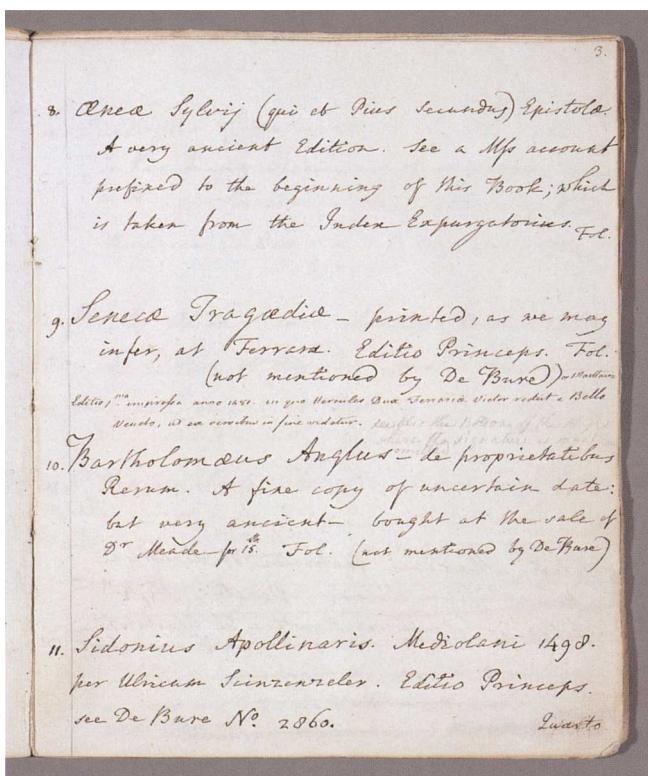 3.
8. Æneæ Sylvij (qui et Pius Secundus) Epistolæ.
A very ancient Edition. See a Mſs account
prefixed to the beginning of this Book; which
is taken from the Index Expurgatorius. Fol.
9. Senecæ Tragœdiæ – printed, as we may
infer, at Ferrara. Editio Princeps. Fol.
(not mentioned by De Bure) or Maittaire
Editio, impressa anno in quo Hercules Dux Ferrariæ Victor rediit e Bello
Veneto, ut ex in fine videtur. see the bottom of the
where the signature is
10. Bartholomæus Anglus – de proprietatibus
Rerum. A fine copy of uncertain date:
but very ancient – bought at the sale of
Dr Meade for 15. Fol. (not mentioned by De Bure)
11. Sidonius Apollinaris. Mediolani 1498.
per Ulricum Scinzenzeler. Editio Princeps.
see De Bure No. 2860. Quarto